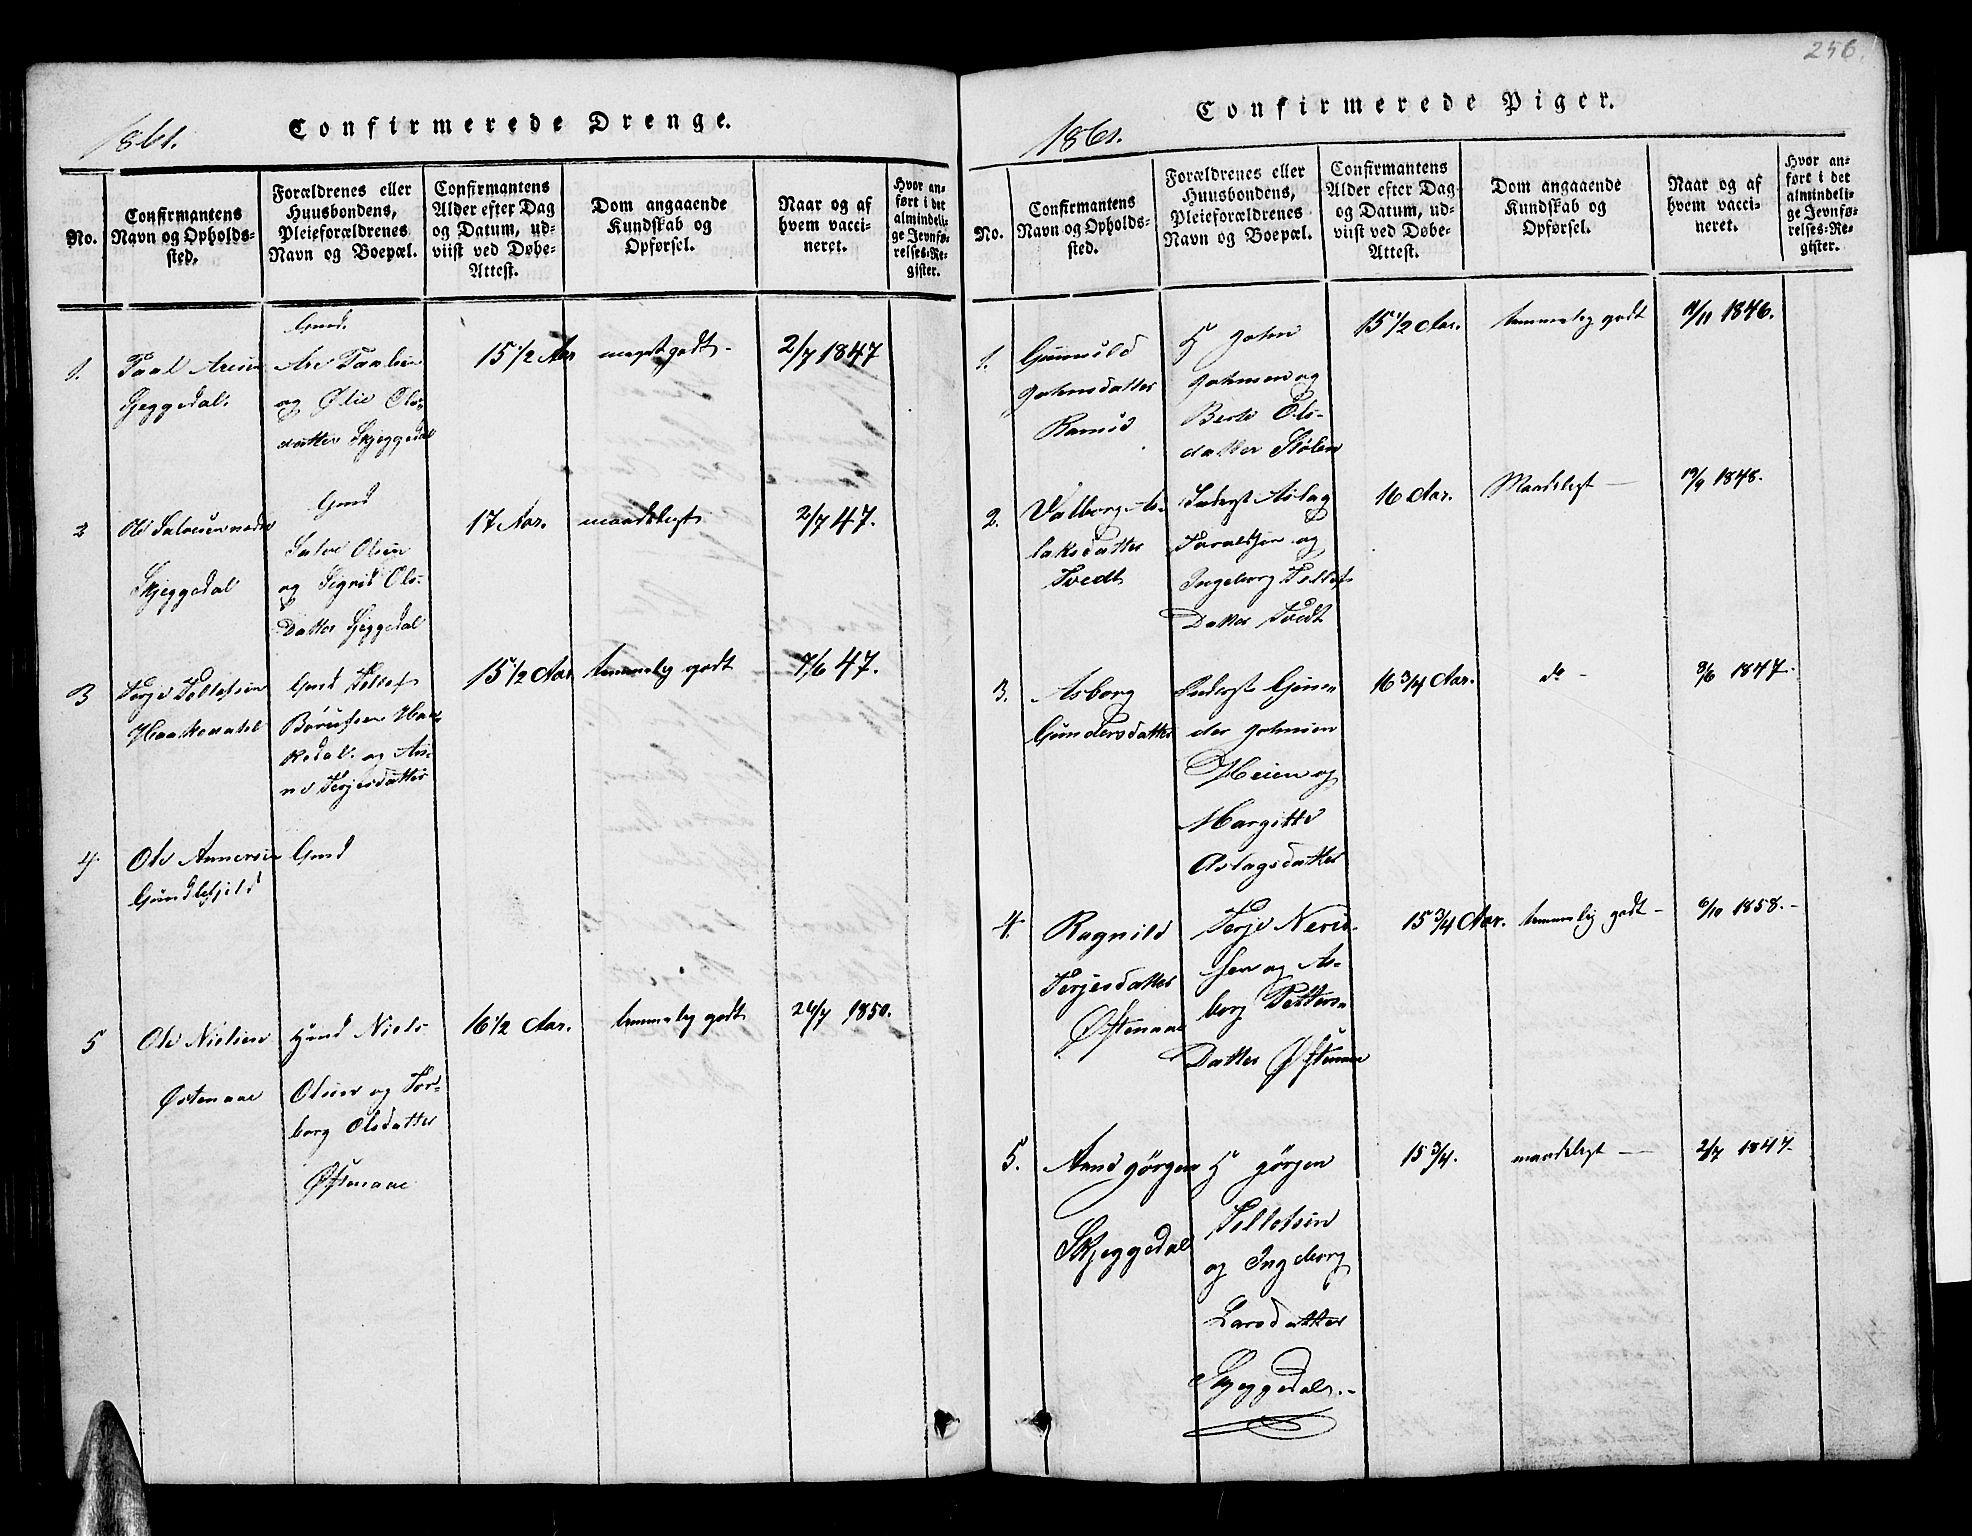 256.
1861.
Confirmerede Drenge.
No.
Confirmantens
Navn og Opholds-
sted.
Forældrenes eller
Huusbondens,
Pleieforældrenes
Navn og Boepæl.
Confirmantens
Alder efter Dag
og Datum, ud-
viist ved Døbe-
Attest.
Dom angaaende
Kundskab og
Opførsel.
Naar og af
hvem vacci-
neret.
Hvor an-
ført i det
almindeli-
ge Jevnfø-
relses-Re-
gister.
1.
Paal Aresen
Sjeggedal.
Gmd.
Are Paalsen
og Ølie Ols-
datter Skjeggedal
15 1/2 Aar
meget godt -
2/7 1847
2
Ole Salvesen
Skjeggedal
Gmd
Salve Olsen
og Sigrid Ols-
Datter Sjeggedal
17 Aar.
maadeligt
2/7 47.
3
Terje Tellefsen
Gmd Tellef
og
Terjesdatter
15 1/2 Aar
temmelig godt
7/6 47.
4
Ole
Gmd
5
Ole Nielsen
Østenaae
Gmd Niels
Olsen og Tor-
borg Olsdatter
Østenaae
16 1/2 Aar.
temmelig godt
26/7 1850.
1861.
Confirmerede Piger.
No.
Confirmantens
Navn og Opholds-
sted.
Forældrenes eller
Huusbondens,
Pleieforældrenes
Navn og Boepæl.
Confirmantens
Alder efter Dag
og Datum, ud-
viist ved Døbe-
Attest.
Dom angaaende
Kundskab og
Opførsel.
Naar og af
hvem vacci-
neret.
Hvor an-
ført i det
almindeli-
ge Jevnfø-
relses-Re-
gister.
1.
Gunnild
Johnsdatter
John
Johnsen og
Berte Ols-
datter Stølen
15 1/2 Aar.
temmelig godt
11/11 1846.
2.
Valborg As-
laksdatter
Tvedt
Inderst Aslag
Taraldsen og
Ingeborg Tellefs
Datter Tvedt
16 Aar.
Maadeligt -
19/9 1848.
3.
Asborg
Gundersdatter
Inderst Gun-
der Johnsen
Heien og
Margitte
Aslagsdatter
16 3/4 Aar.
do -
9/6 1847.
4.
Ragnild
Terjesdatter
Østenaae
Terje Neri-
sen og As-
borg Petters
Datter Østenaae
15 3/4 Aar.
temmelig godt -
6/10 1858. -
5.
Anne Jørgen
Skjeggedal
Jørgen
Tellefsen
og Ingeborg
Larsdatter
Skjeggedal. -
15 3/4.
maadeligt -
2/7 1847.